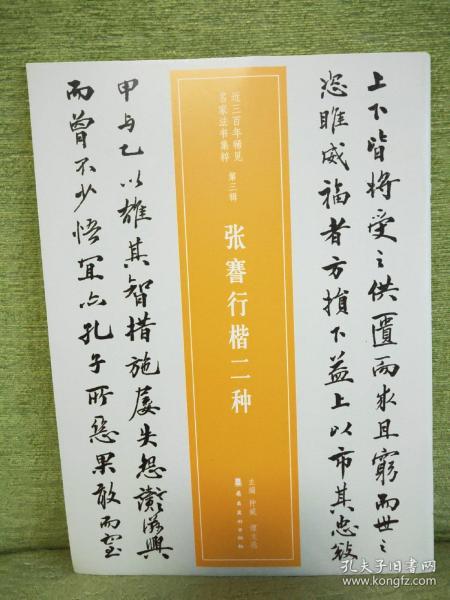 上下皆将受之供匮而求且穷而世之
恣睢威福者方损下益上以市其忠敏
近三百年稀见
名家法书集粹
第三辑
张謇行楷二种
主编 仲威
甲与乙以雄其智措施屡失怨讟滋兴
而曾不少悟宜亦孔子所恶果敢而窒
孔夫子旧书网